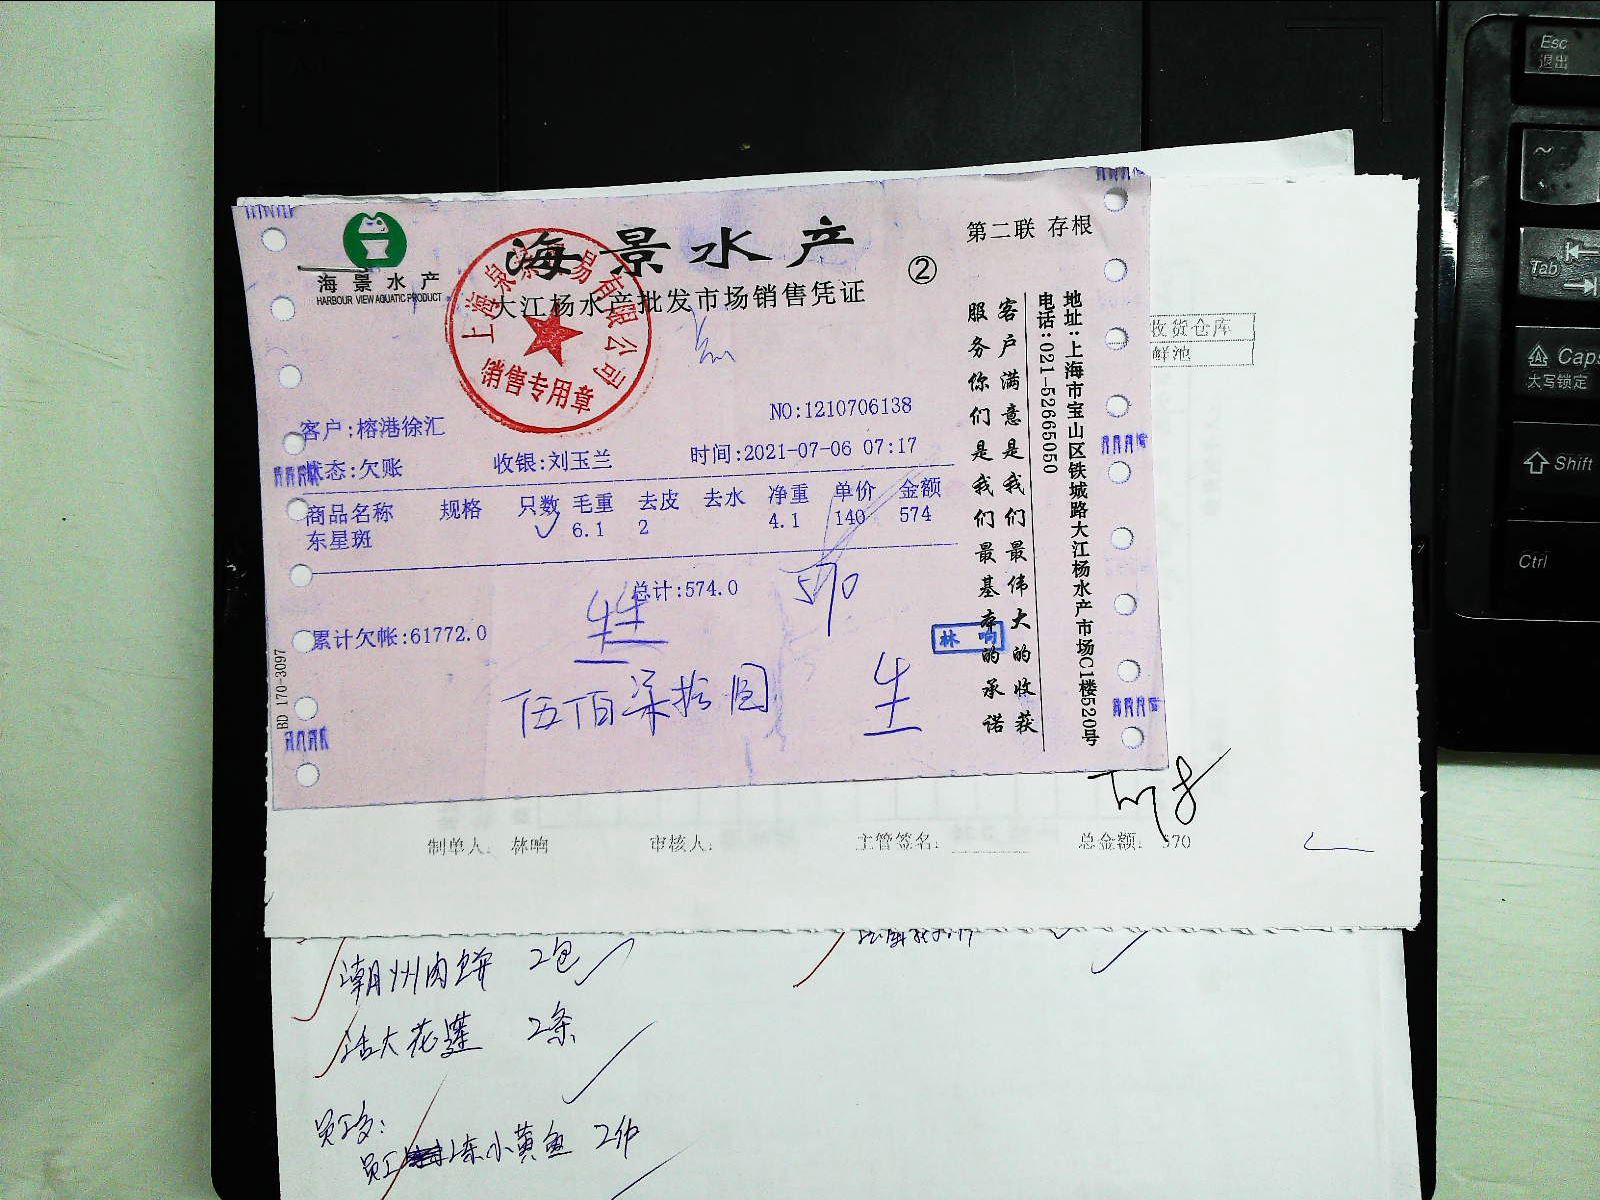 海景水产
HARBOUR VIEW AQUATIC PRODUCT
海景水产
②
第二联 存根
大江杨水产批发市场销售凭证
销售专用章
NO:1210706138
客户:榕港徐汇
状态:欠账 收银:刘玉兰 时间:2021-07-06 07:17
商品名称 规格 只数 毛重 去皮 去水 净重 单价 金额
东星斑 6.1 2 4.1 140 574
总计:574.0 570
累计欠帐:61772.0
伍佰柒拾圆
林响
BD 170-3097
客户满意是我们最伟大的收获
服务你们是我们最基本的承诺
地址:上海市宝山区铁城路大江杨水产市场C1楼520号
电话:021-52665050
收货仓库
鲜池
制单人: 林响 审核人: 主管签名: 总金额: 570
潮州肉饼 2包
活大花莲 2条
员工餐:
小黄鱼
Esc
退出
~
Tab
Caps
大写锁定
Shift
Ctrl